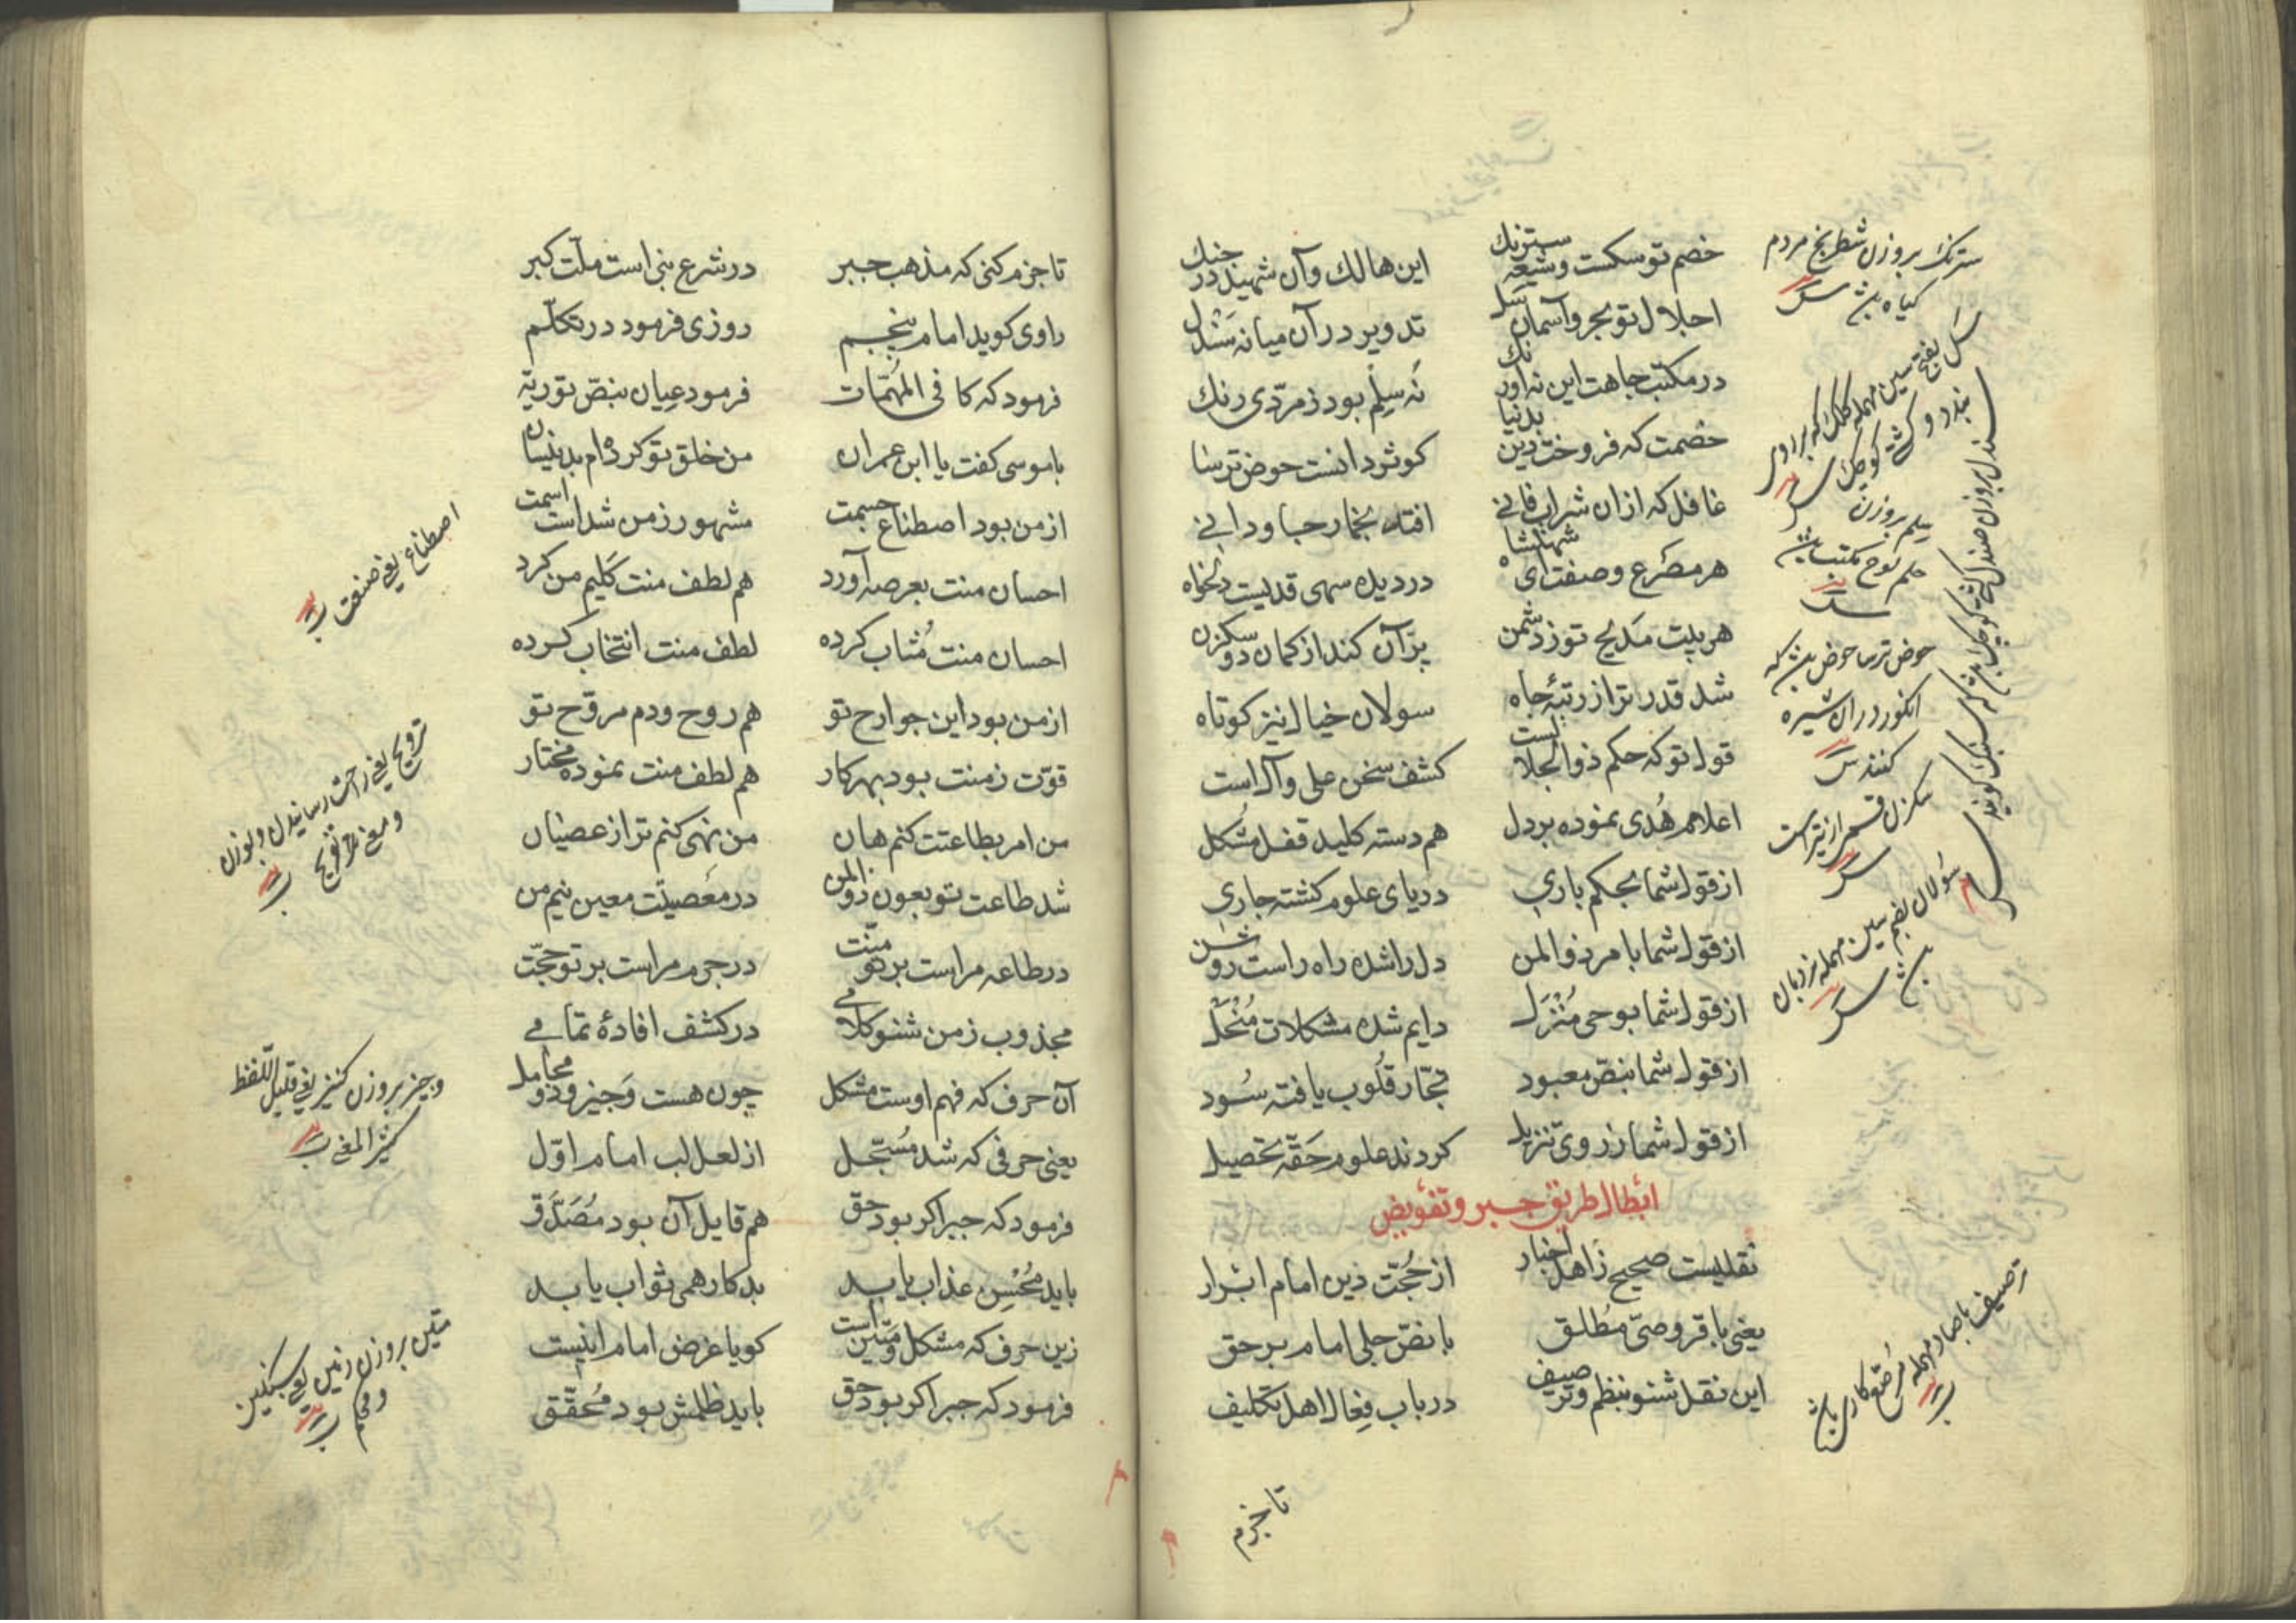 خصم تو سکست و شیعه سترنك
این هالك وآن شهید در جنك
اجلال تو بحر وآسمان سل
تدویر در آن میانه سندل
در مکتب جاهت این نه اورنك
نه سیلم بود زمردی رنك
خصمت که فروخت دین بدنیا
کوثر دانست حوض ترسا
غافل که ازان شراب فانے
افتد بخمار جاودانے
هر مصرع وصفت ای شهنشاه
در دیده سهی قدیست دلخواه
هر بیت مدیح تو ز دشمن
پرّان کند از کمان دو سکزن
شد قدر ترا ز رتبۀ جاه
سولان خیال نیز کوتاه
قول تو که حکم ذوالجلالست
کشف سخن علی وآلست
اعلام هُدی نموده بر دل
هم دسته کلید قفل مشکل
از قول شما بحکم باری
دریای علوم کشته جاری
از قول شما بامر ذوالمن
دل را شده راه راست روشن
از قول شما بوحی مُنْزَل
دایم شده مشکلات مُنْحَلّ
از قول شما بنصّ معبود
تجّار قلُوب یافته سُود
از قول شما ز روی تنزیل
کردند علوم حَقّه تحصیل
ابطال طریق جبر و تفویض
نقلیست صحیح ز اهل اخبار
از حُجّت دین امام ابرار
یعنی باقر وصیّ مُطلق
با نصّ جلی امام بر حق
این نقل شنو بنظم و ترصیف
در باب فِعال اهل تکلیف
سترنك بروزن شطرنج مردم
کیاه باشد س
سَل بفتح سین مهمله کلك که بر روی
بندد و کشتی کوچك س
سندل بروزن صندل کشتی کوچك باشد که سنبك کویند س
سیلم بروزن
حلم لوح مکتب باشد
س
حوض ترسا حوض باشد که
انکور در ان شیره
کنند س
سکزن قسمی از تیر است
س
سَولان بضم سین مهمله نردبان
باشد س
ترصیف با صاد مهمله مُرصّع کاری باشد
تا جزم
تا جزم کنی که مذهب جبر
در شرع نبی است ملّت کبر
راوی کوید امام پنجم
روزی فرمود در تکلّم
فرمود که کافی المُهمّات
فرمود عیان بنصّ توریة
با موسی کفت یا ابن عمران
من خلق تو کرده ام بدینسان
از من بود اصطناع جسمت
مشهور ز من شداست اسمت
احسان منت بعرصه آورد
هم لطف منت کلیم من کرد
احسان منت مُثاب کرده
لطف منت انتخاب کرده
از من بود این جوارح تو
هم روح و دم مروّح تو
قوّت ز منت بود بهر کار
هم لطف منت نموده مختار
من امر بطاعتت کنم هان
من نهی کنم ترا ز عصیان
شد طاعت تو بعون ذوالمن
در معصیتت معین نیم من
در طاعه مراست بر تو منّت
در جرم مراست بر تو حجّت
مجذوب ز من شنو کلامے
در کشف افادۀ تمامے
آن حرف که فهم اوست مشکل
چون هست وَجیز و ذو محامل
یعنی حرفی که شد مُسَجّل
از لعل لب امام اوّل
فرمود که جبر اکر بود حق
هم قایل آن بود مُصَدَّق
باید مُحْسِن عذاب یابد
بدکار همی ثواب یابد
زین حرف که مشکل و متین است
کویا غرض امام اینست
فرمود که جبر اکر بود حق
باید ظلمش بود مُحَقّق
اصطناع یعنی صنعت
ترویح یعنی راحت رسانیدن و بوزن
و معنی تفریح
وجیز بروزن کنیز یعنی قلیل اللّفظ
کثیر المعنی
متین بروزن زمین یعنی سنکین
و محکم